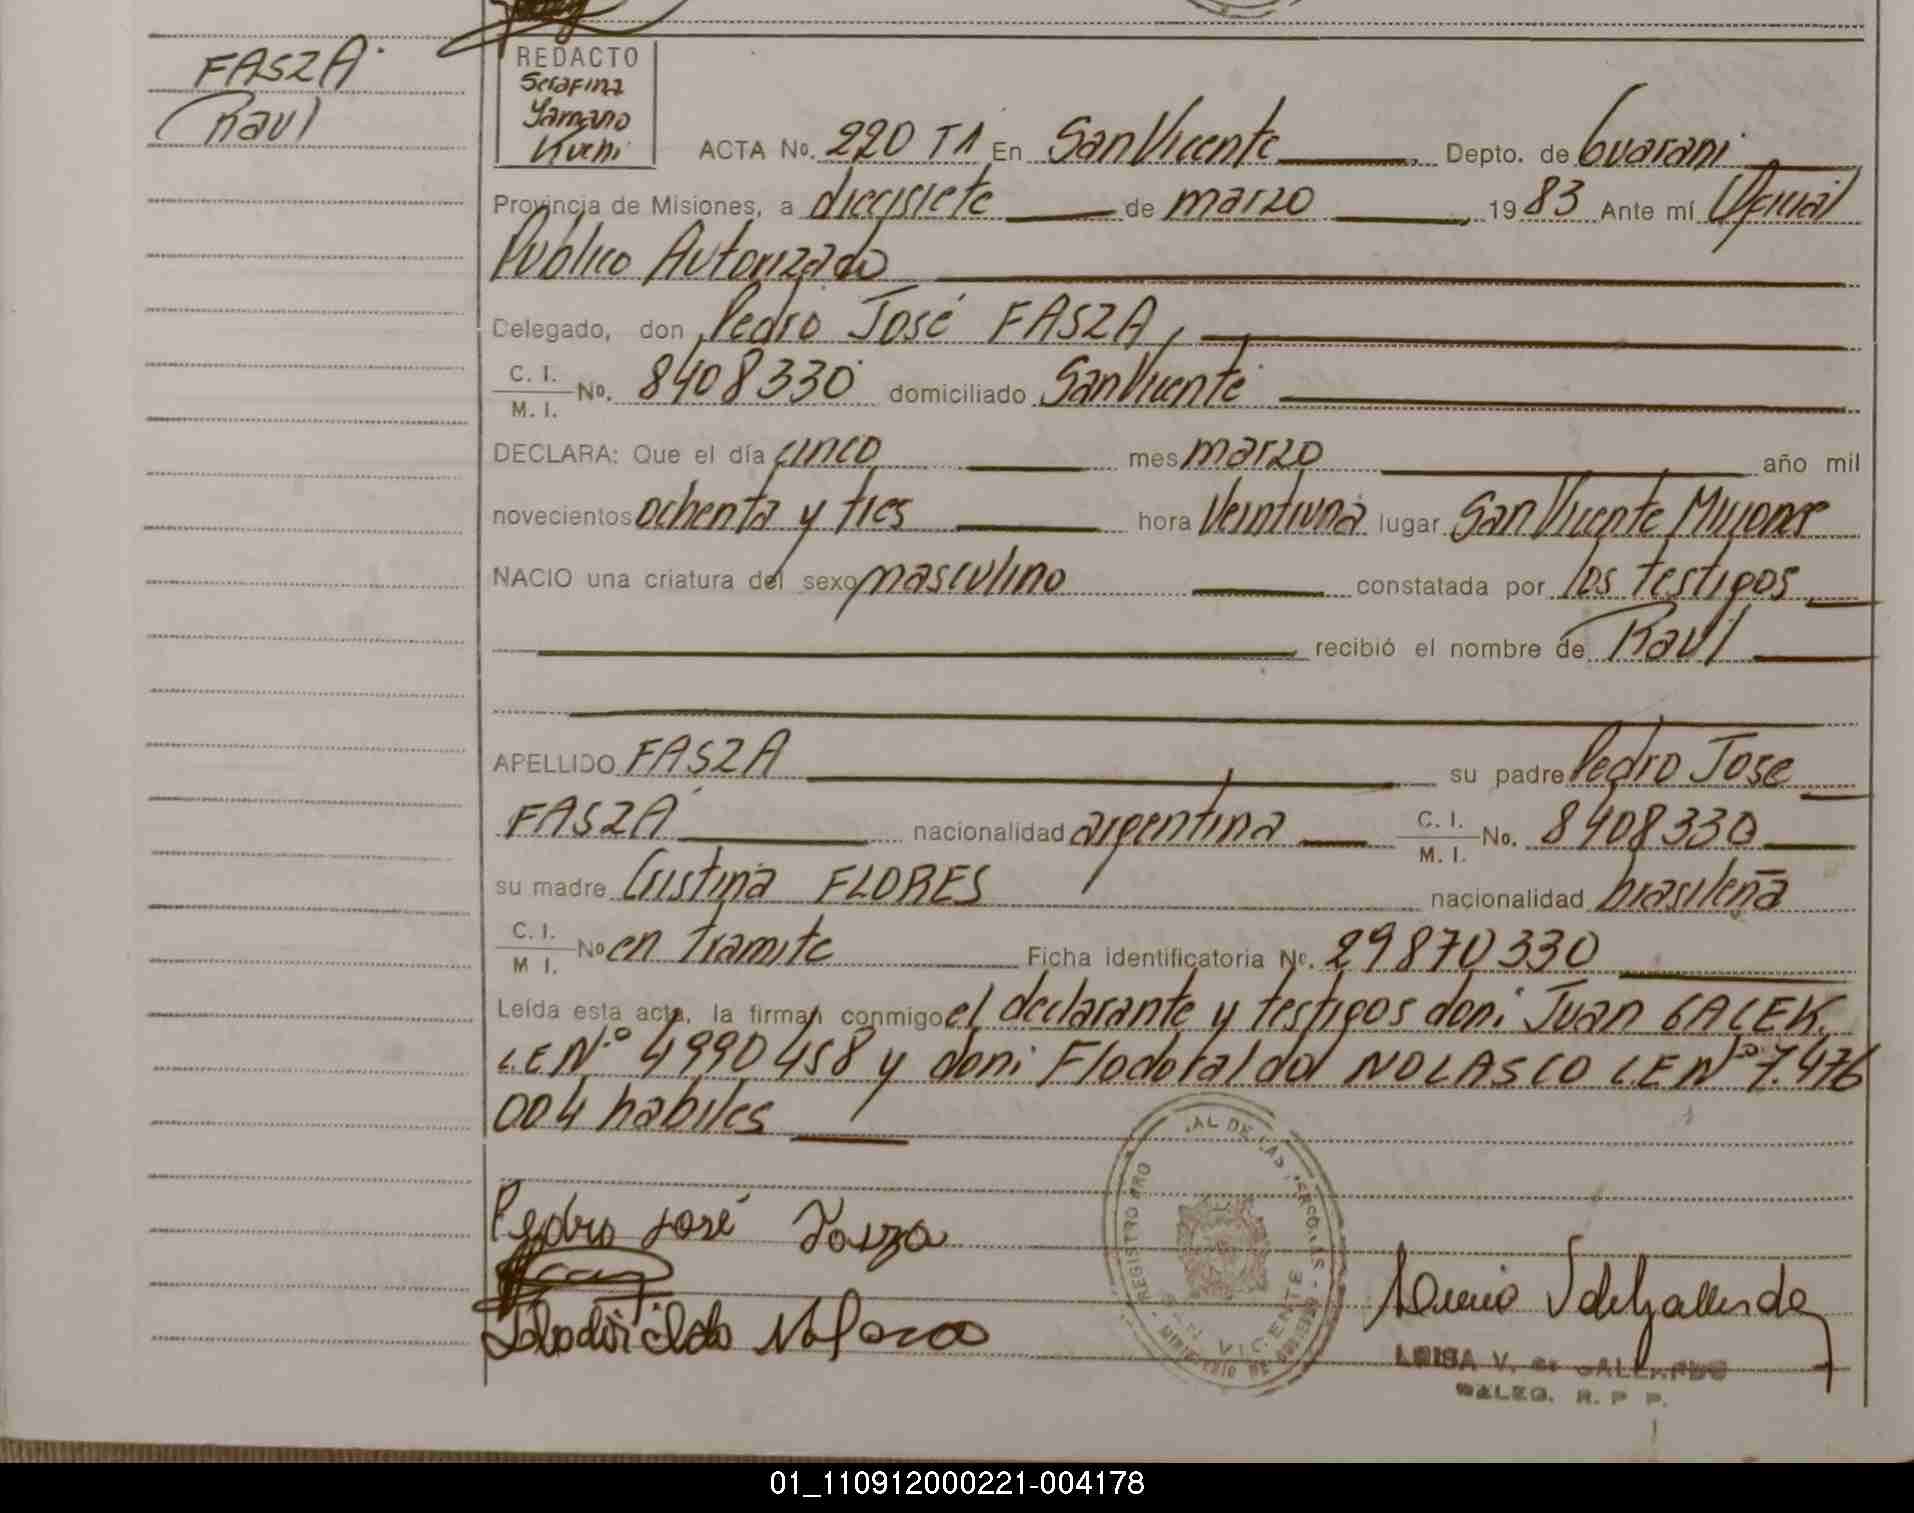 FASZA
Raul
REDACTO
Serafina
Kueni
ACTA No. 220 T1 En San Vicente Depto. de Guarani
Provincia de Misiones, a diecisiete de marzo 1983 Ante mí Oficial
Publico Autorizado
Delegado, don Pedro José FASZA,
C. I.
M. I. No. 8408330 domiciliado San Vicente
DECLARA: Que el día cinco mes marzo año mil
novecientos ochenta y tres hora veintiuna lugar San Vicente Misiones
NACIO una criatura del sexo masculino constatada por los testigos
recibió el nombre de Raul
APELLIDO FASZA su padre Pedro Jose
FASZA nacionalidad argentina C. I. M. I. No. 8408330
su madre Cristina FLORES nacionalidad brasileña
C. I. M I. No en tramite Ficha identificatoria No. 29870330
Leída esta acta, la firman conmigo el declarante y testigos don: Juan GALEK
L.E Nº 4990458 y don: Flodoraldo NOLASCO L.E Nº 7.476
004 habiles
Pedro José Fasza
REGISTRO PRO AL DE LAS PERSONAS
SAN VICENTE
MINISTERIO DE GOBIERNO
LUISA V. de GALLARDO
DELEG. R. P P.
01_110912000221-004178